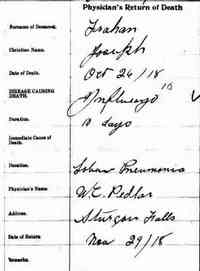 Physician's Return of Death
Surname of Deceased. Trahan
Christian Name. Joseph
Date of Death. Oct 26/18
DISEASE CAUSING DEATH. Influenza 10
Duration. 10 days
Immediate Cause of Death.
Duration. Lobar Pneumonia
Physician's Name W.C. Pedlar
Address. Sturgeon Falls
Date of Return Nov 29/18
Remarks.